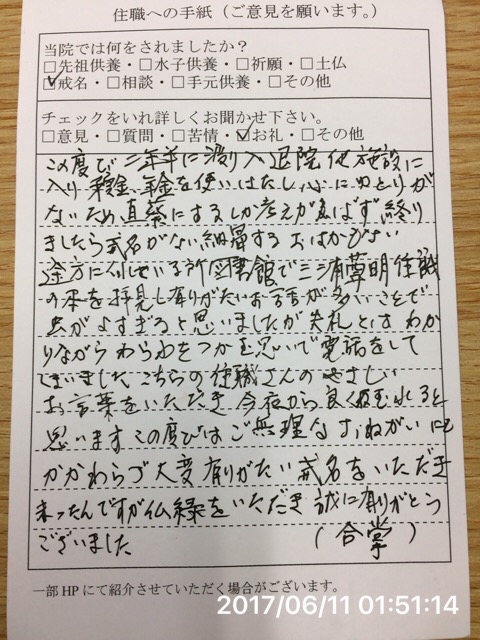 住職への手紙（ご意見を願います。）
当院では何をされましたか？
□先祖供養・□水子供養・□祈願・□土仏
☑戒名・□相談・□手元供養・□その他
チェックをいれ詳しくお聞かせ下さい。
□意見・□質問・□苦情・☑お礼・□その他
この度び二年半に渡り入退院他施設に
入り 年金を使いはたし にゆとりが
ないため直葬にするしか考えが及ばず終り
ましたら戒名がない納骨するおはかがない
途方に れている所図書館で三浦尊明住職
の本を拝見し有りがたいお言 が多いことで
虫がよすぎると思いましたが失礼とはわか
りながらわらをもつかむ思いで電話をして
しまいましたこちらの住職さんのやさしい
お言葉をいただき今夜から良く眠れると
思いますこの度びはご無理なおねがいにも
かかわらづ大変有りがたい戒名をいただき
まったんですが仏縁をいただき誠に有りがとう
ございました （合掌）
一部HPにて紹介させていただく場合がございます。
2017/06/11 01:51:14